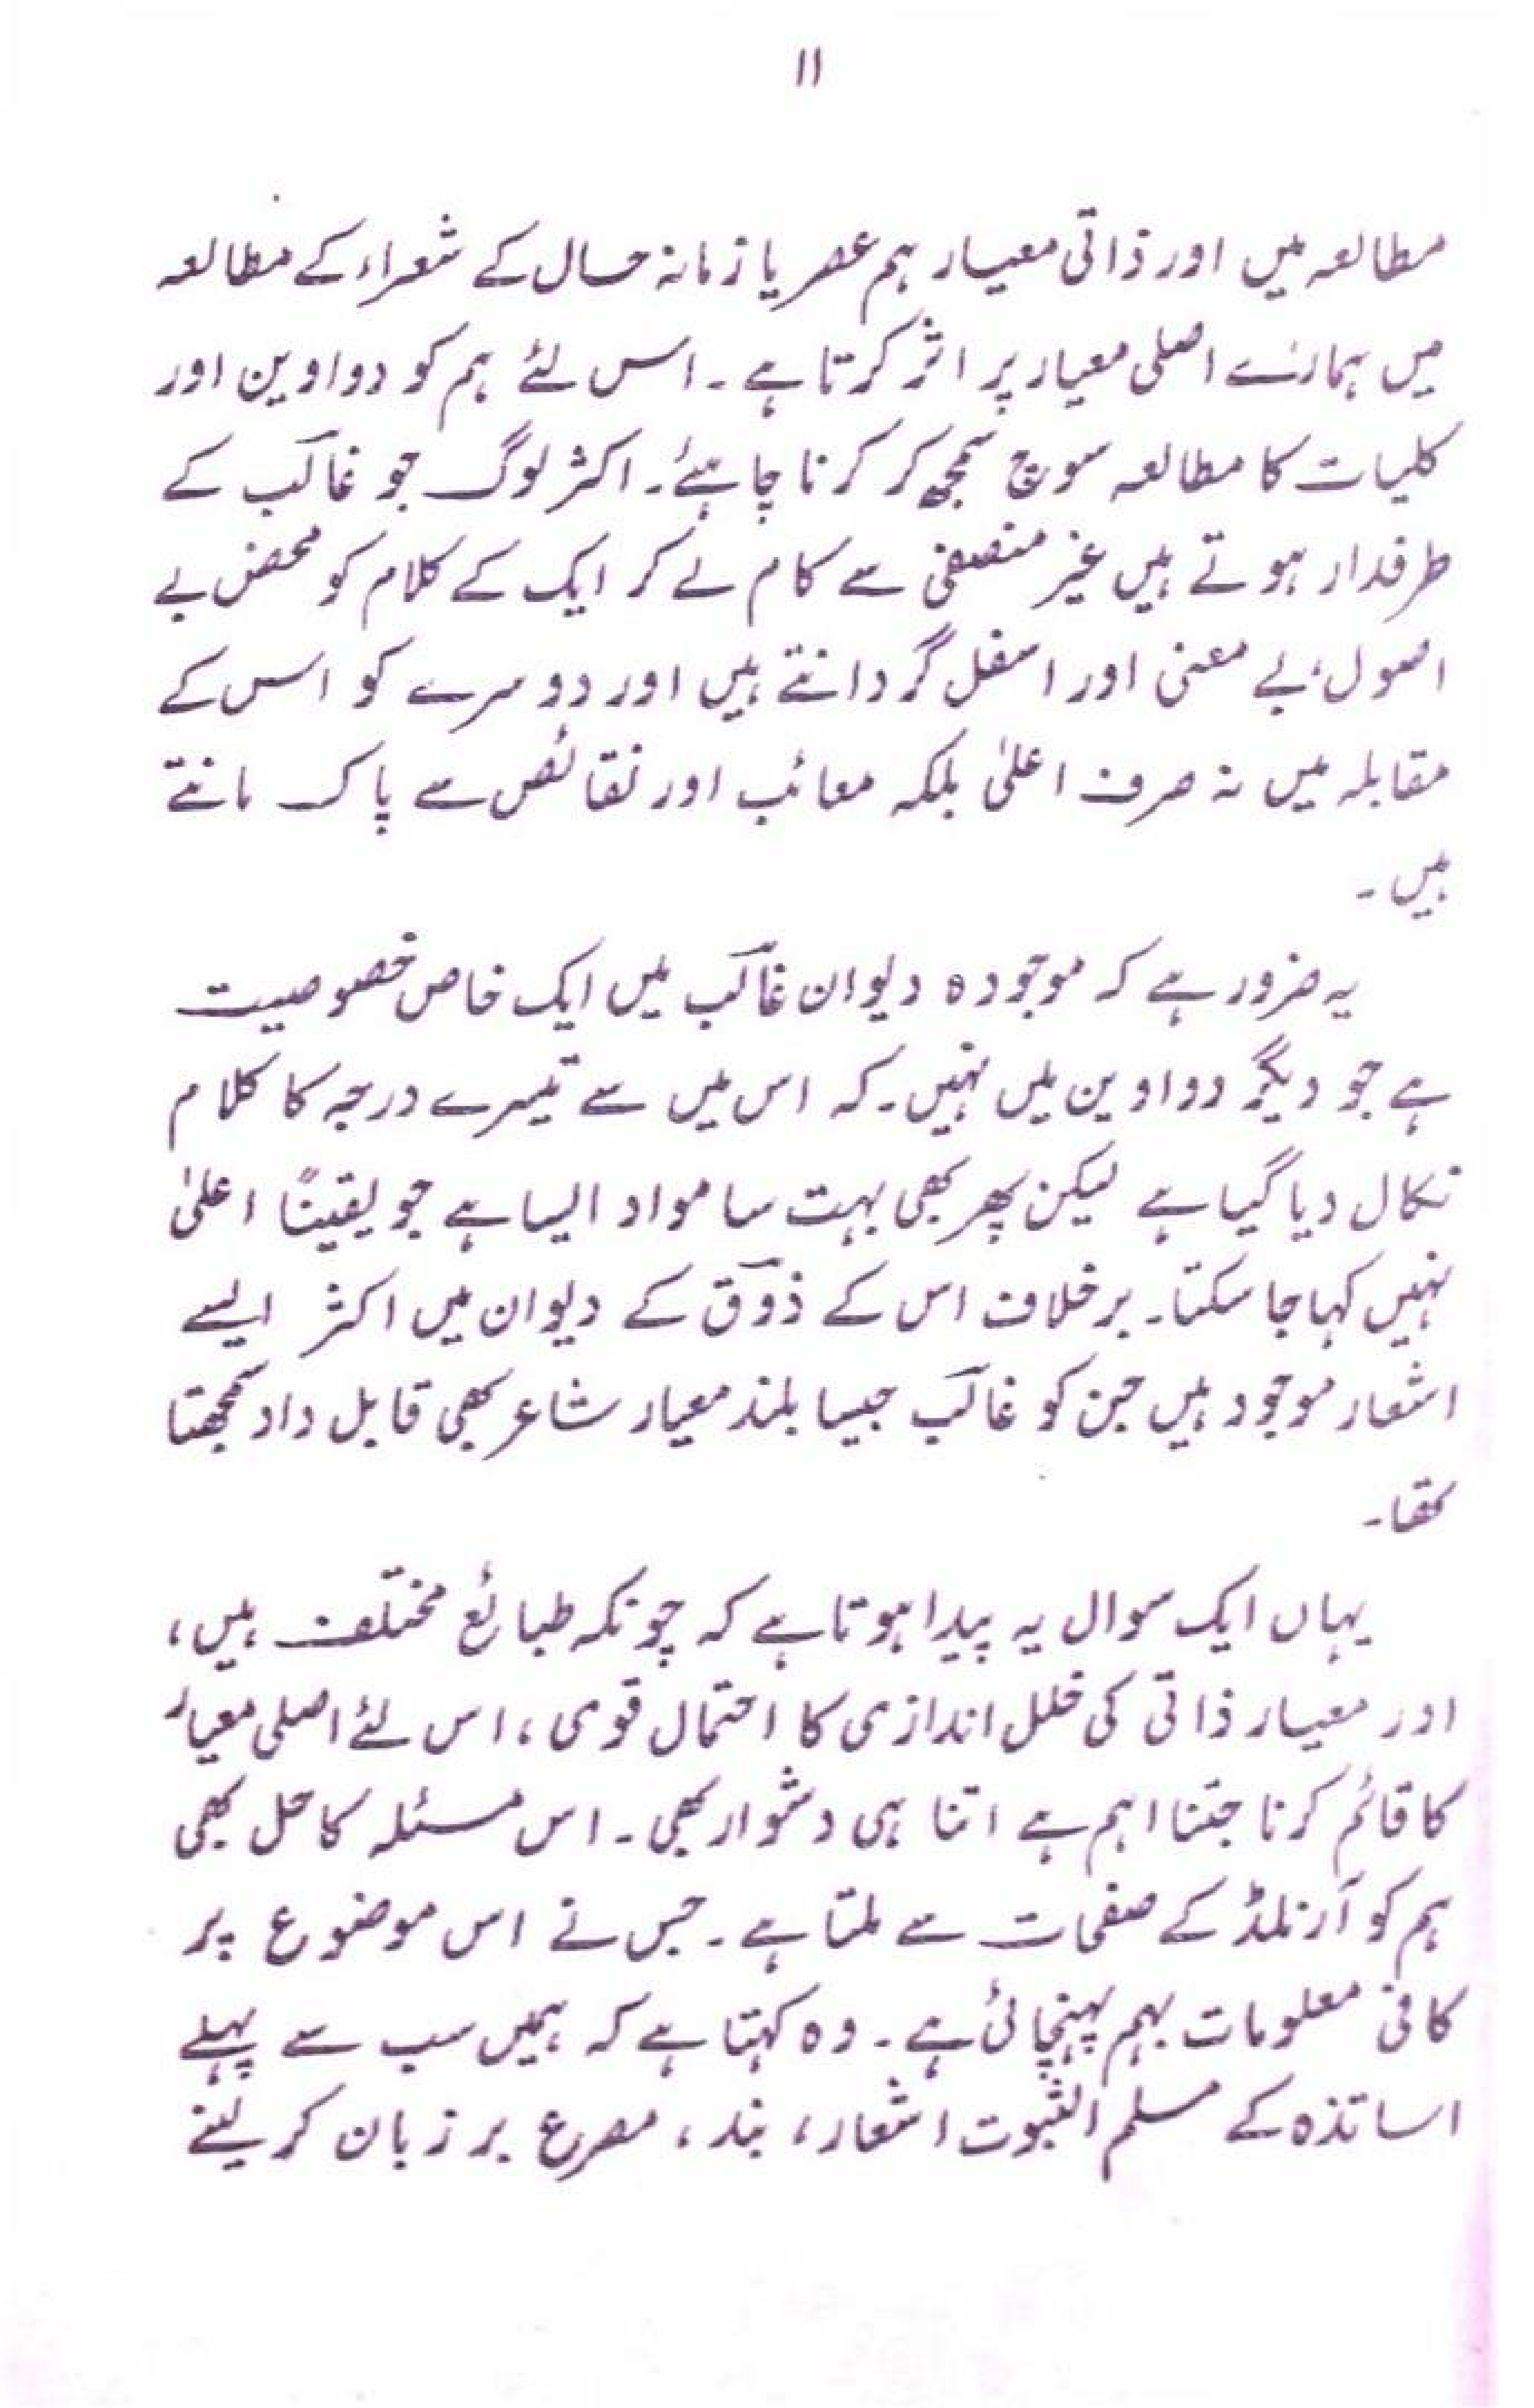 ۱۱
مطالعہ میں اور ذاتی معیار ہم عصر یا زمانۂ حال کے شعراء کے مطالعہ
میں ہمارے اصلی معیار پر اثر کرتا ہے۔ اس لئے ہم کو دواوین اور
کلیات کا مطالعہ سوچ سمجھ کر کرنا چاہئے۔ اکثر لوگ جو غالبؔ کے
طرفدار ہوتے ہیں غیر منصفی سے کام لے کر ایک کے کلام کو محض بے
اصول، بے معنی اور اسفل گردانتے ہیں اور دوسرے کو اس کے
مقابلہ میں نہ صرف اعلیٰ بلکہ معائب اور نقائص سے پاک مانتے
ہیں۔
یہ ضرور ہے کہ موجودہ دیوان غالبؔ میں ایک خاص خصوصیت
ہے جو دیگر دواوین میں نہیں۔ کہ اس میں سے تیسرے درجہ کا کلام
نکال دیا گیا ہے لیکن پھر بھی بہت سا مواد ایسا ہے جو یقیناً اعلیٰ
نہیں کہا جا سکتا۔ برخلاف اس کے ذوقؔ کے دیوان میں اکثر ایسے
اشعار موجود ہیں جن کو غالبؔ جیسا بلند معیار شاعر بھی قابل داد سمجھتا
تھا۔
یہاں ایک سوال یہ پیدا ہوتا ہے کہ چونکہ طبائع مختلف ہیں،
اور معیار ذاتی کی خلل اندازی کا احتمال قوی، اس لئے اصلی معیار
کا قائم کرنا جتنا اہم ہے اتنا ہی دشوار بھی۔ اس مسئلہ کا حل بھی
ہم کو آرنلڈ کے صفحات سے ملتا ہے۔ جس نے اس موضوع پر
کافی معلومات بہم پہنچائی ہے۔ وہ کہتا ہے کہ ہمیں سب سے پہلے
اساتذہ کے مسلم الثبوت اشعار، بند، مصرع بر زبان کر لینے